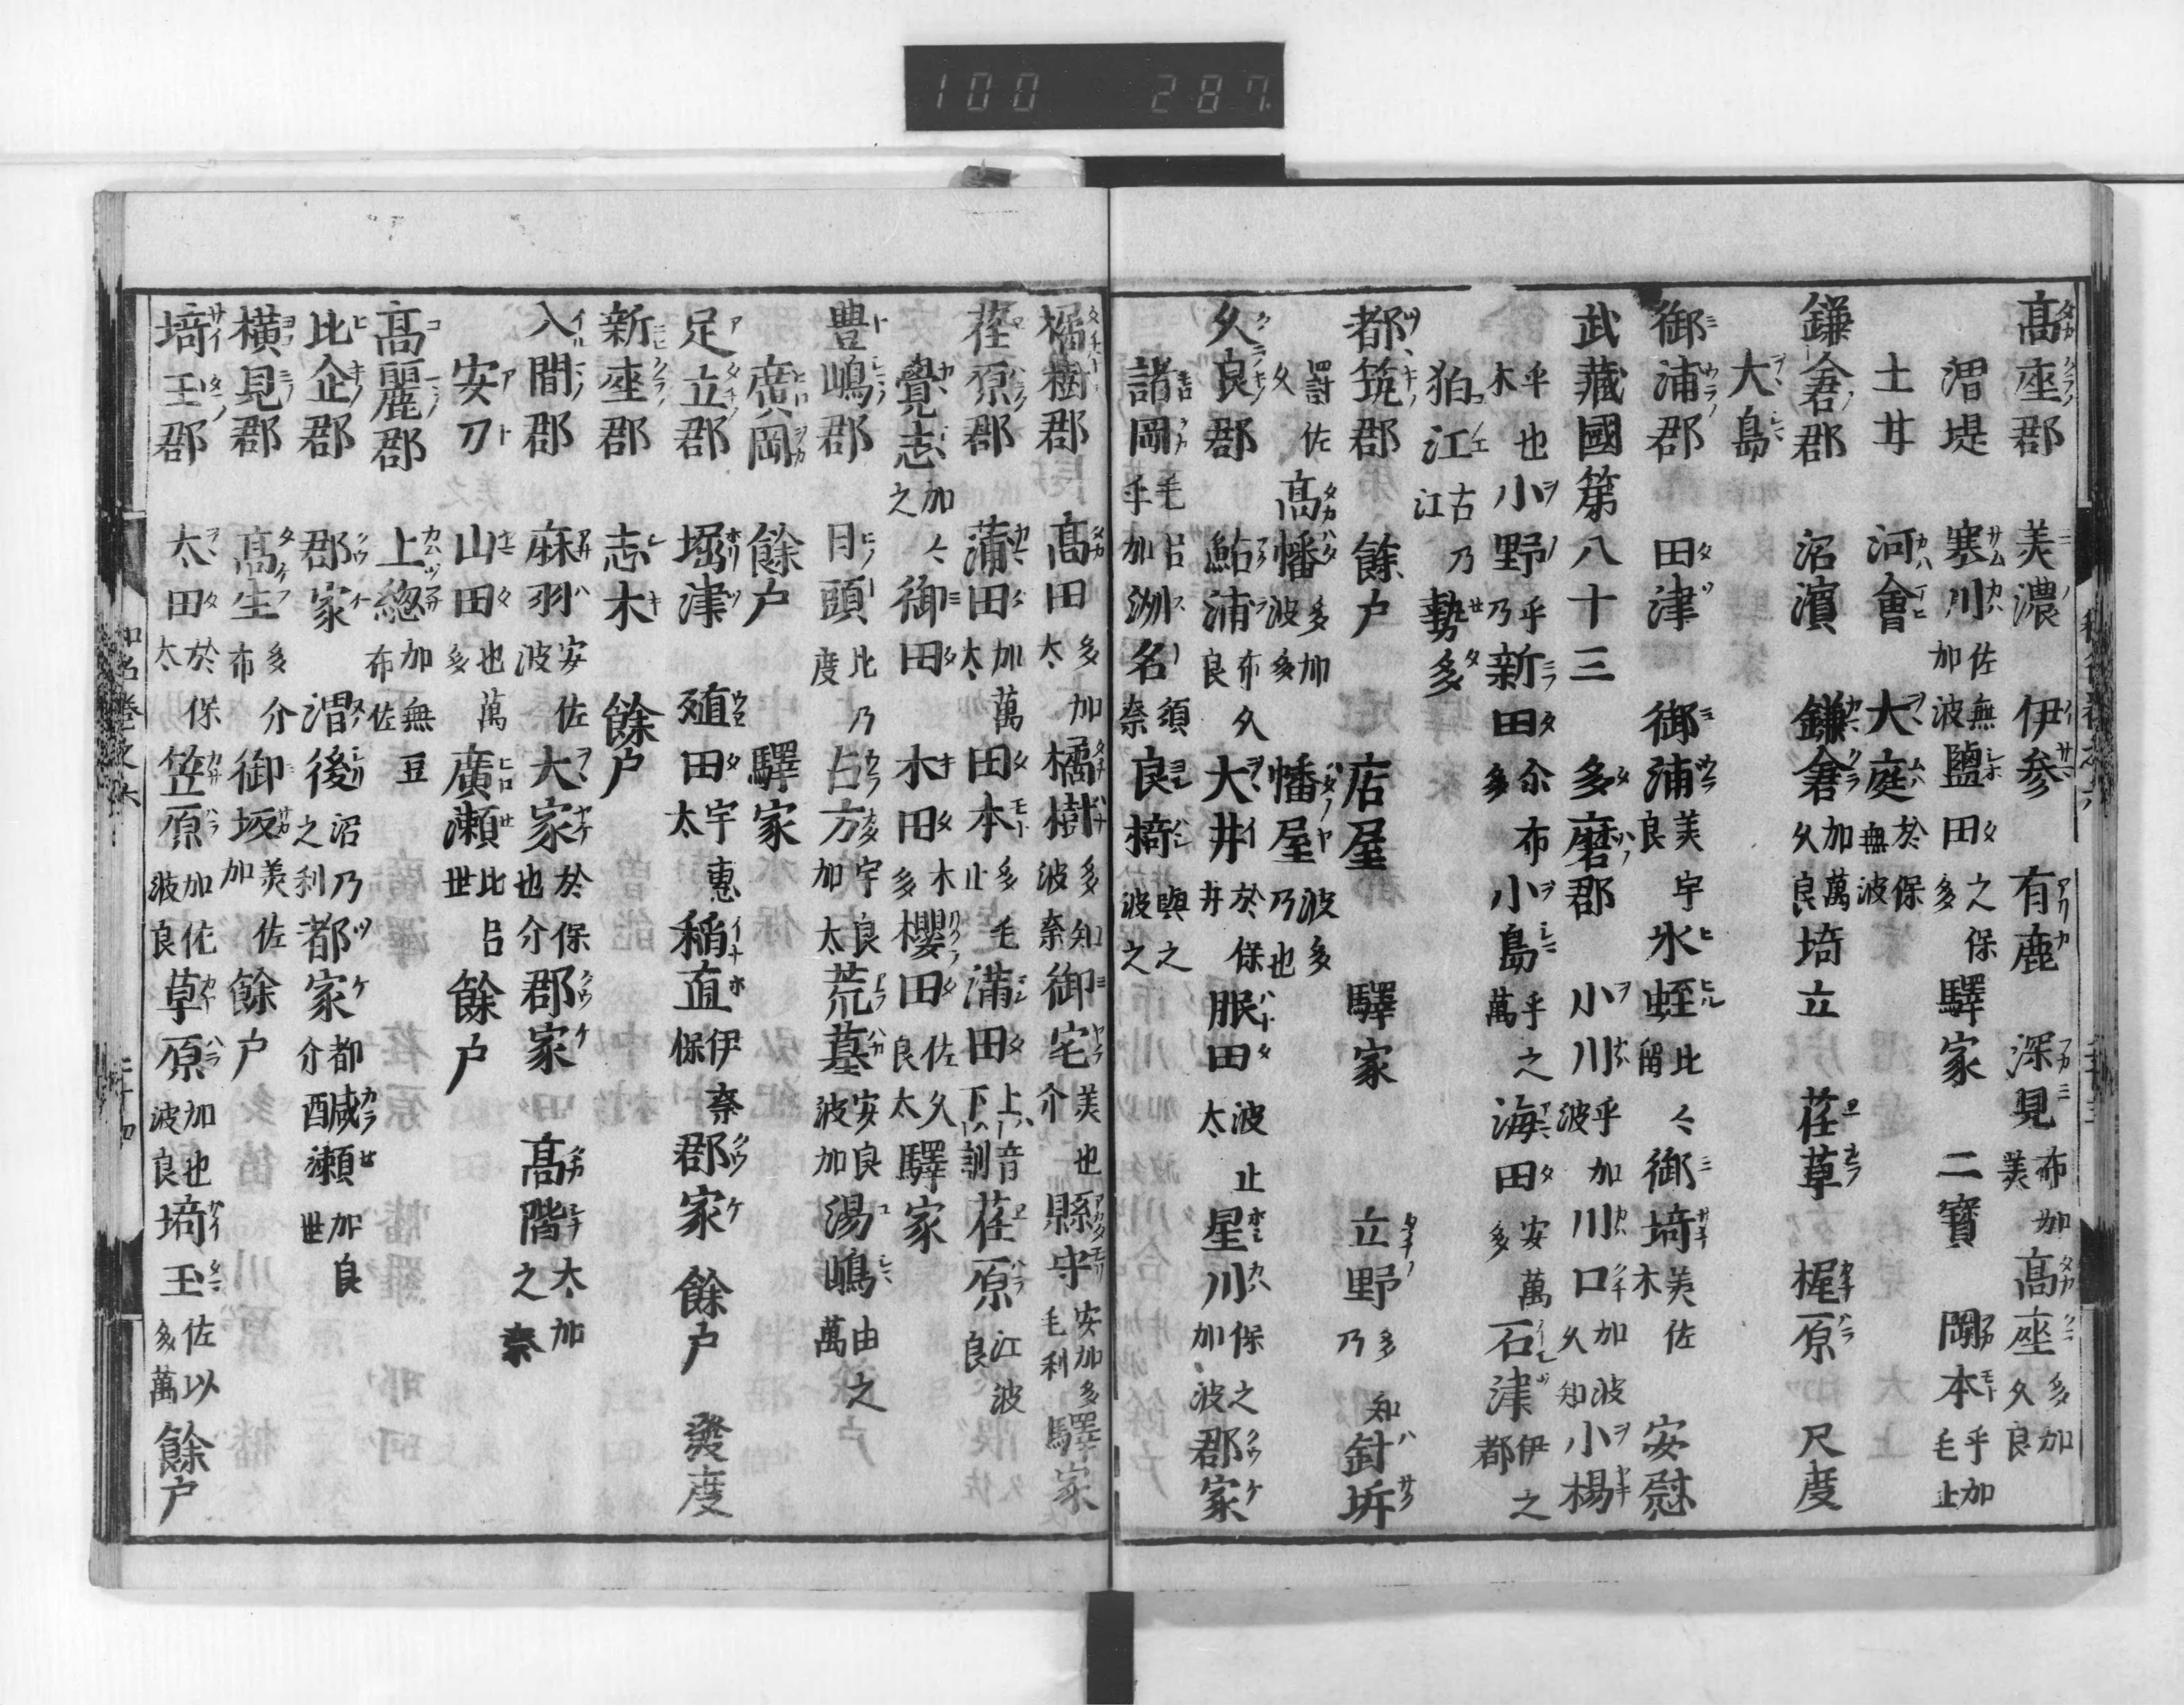 100 287
高座郡 美濃 伊参 有鹿 深見布加美 高座多加久良
渭堤 寒川佐無加波 鹽田之保多 驛家 二寶 岡本乎加毛止
土甘 河會 大庭於保無波
鎌倉郡 沼濱 鎌倉加萬久良 埼立 荏草 梶原 尺度
大島
御浦郡 田津 御浦美宇良 氷蛭比々留 御埼美佐木 安慰
武藏國第八十三 多磨郡 小川乎加波 川口加波久知 小楊
乎也木 小野乎乃 新田尒布多 小島乎之萬 海田安萬多 石津伊之都
狛江古乃江 勢多
都筑郡 餘戸 店屋 驛家 立野多知乃 針㪿
罸佐久 高幡多加波多 幡屋波多乃也
久良郡 鮎浦布久良 大井於保井 服田波止太 星川保之加波 郡家
諸岡毛呂乎加 洲名須奈 良椅與之波之
橘樹郡 高田多加太 橘樹多知波奈 御宅美也介 縣守安加多毛利 驛家
荏原郡 蒲田加萬太 田本多毛止 蒲田上音下訓 荏原江波良
覺志加々之 御田 木田木多 櫻田佐久良太 驛家
豊嶋郡 日頭比乃度 占方宇良加太 荒墓安良波加 湯嶋由之萬
廣岡 餘戸 驛家
足立郡 堀津 殖田宇惠太 稲直伊奈保 郡家 餘戸 發度
新座郡 志木 餘戸
入間郡 麻羽安佐波 大家於保也介 郡家 高階太加之奈
安刀 山田也萬多 廣瀬比呂世 餘戸
高麗郡 上総加無佐布豆
比企郡 郡家 渭後沼乃之利 都家都介 醎瀬加良世
横見郡 高生多介布 御坂美佐加 餘戸
埼玉郡 太田於保太 笠原加佐波良 草原加也波良 埼玉佐以多萬 餘戸